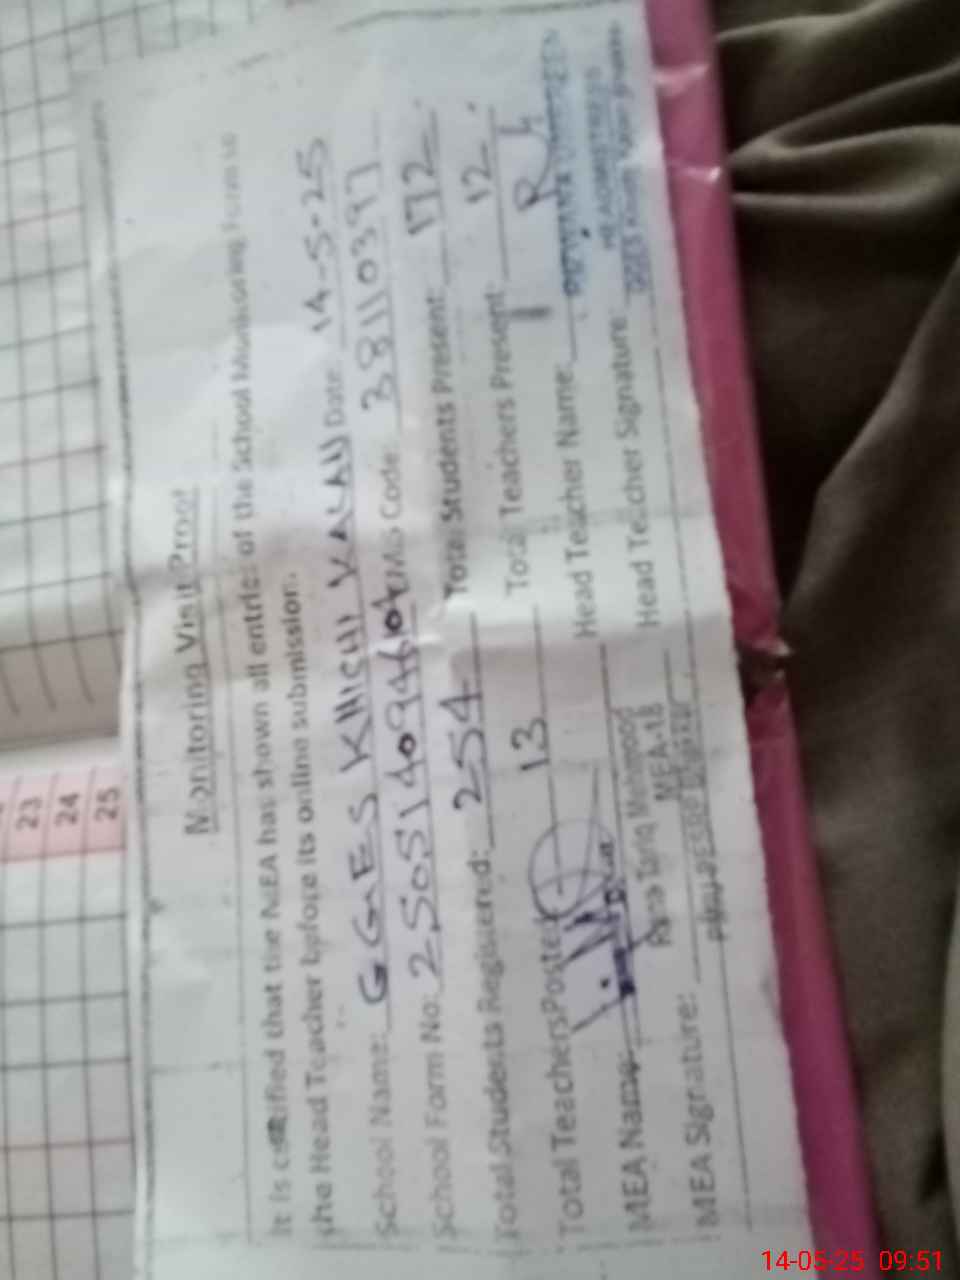 Monitoring Visit Proof
It is certified that the MEA has shown all entries of the School Monitoring Form to
the Head Teacher before its online submission.
School Name: GGES KHICHI KALAN Date: 14-5-25
School Form No: EMIS Code: 38110397
Total Students Registered: 254 Total Students Present: 172
Total Teachers Posted 13 Total Teachers Present: 12
MEA Name: Head Teacher Name:
Rana Tariq Mehmood
MEA-18
MEA Signature: Head Teacher Signature:
HEADMISTRESS
23
24
25
14-05-25 09:51